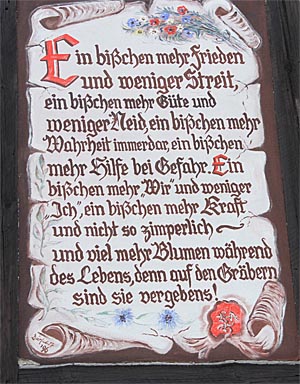 Ein bißchen mehr Frieden
und weniger Streit,
ein bißchen mehr Güte und
weniger Neid, ein bißchen mehr
Wahrheit immerdar, ein bißchen
mehr Hilfe bei Gefahr. Ein
bißchen mehr „Wir" und weniger
„Ich", ein bißchen mehr Kraft
und nicht so zimperlich ~
und viel mehr Blumen während
des Lebens, denn auf den Gräbern
sind sie vergebens!